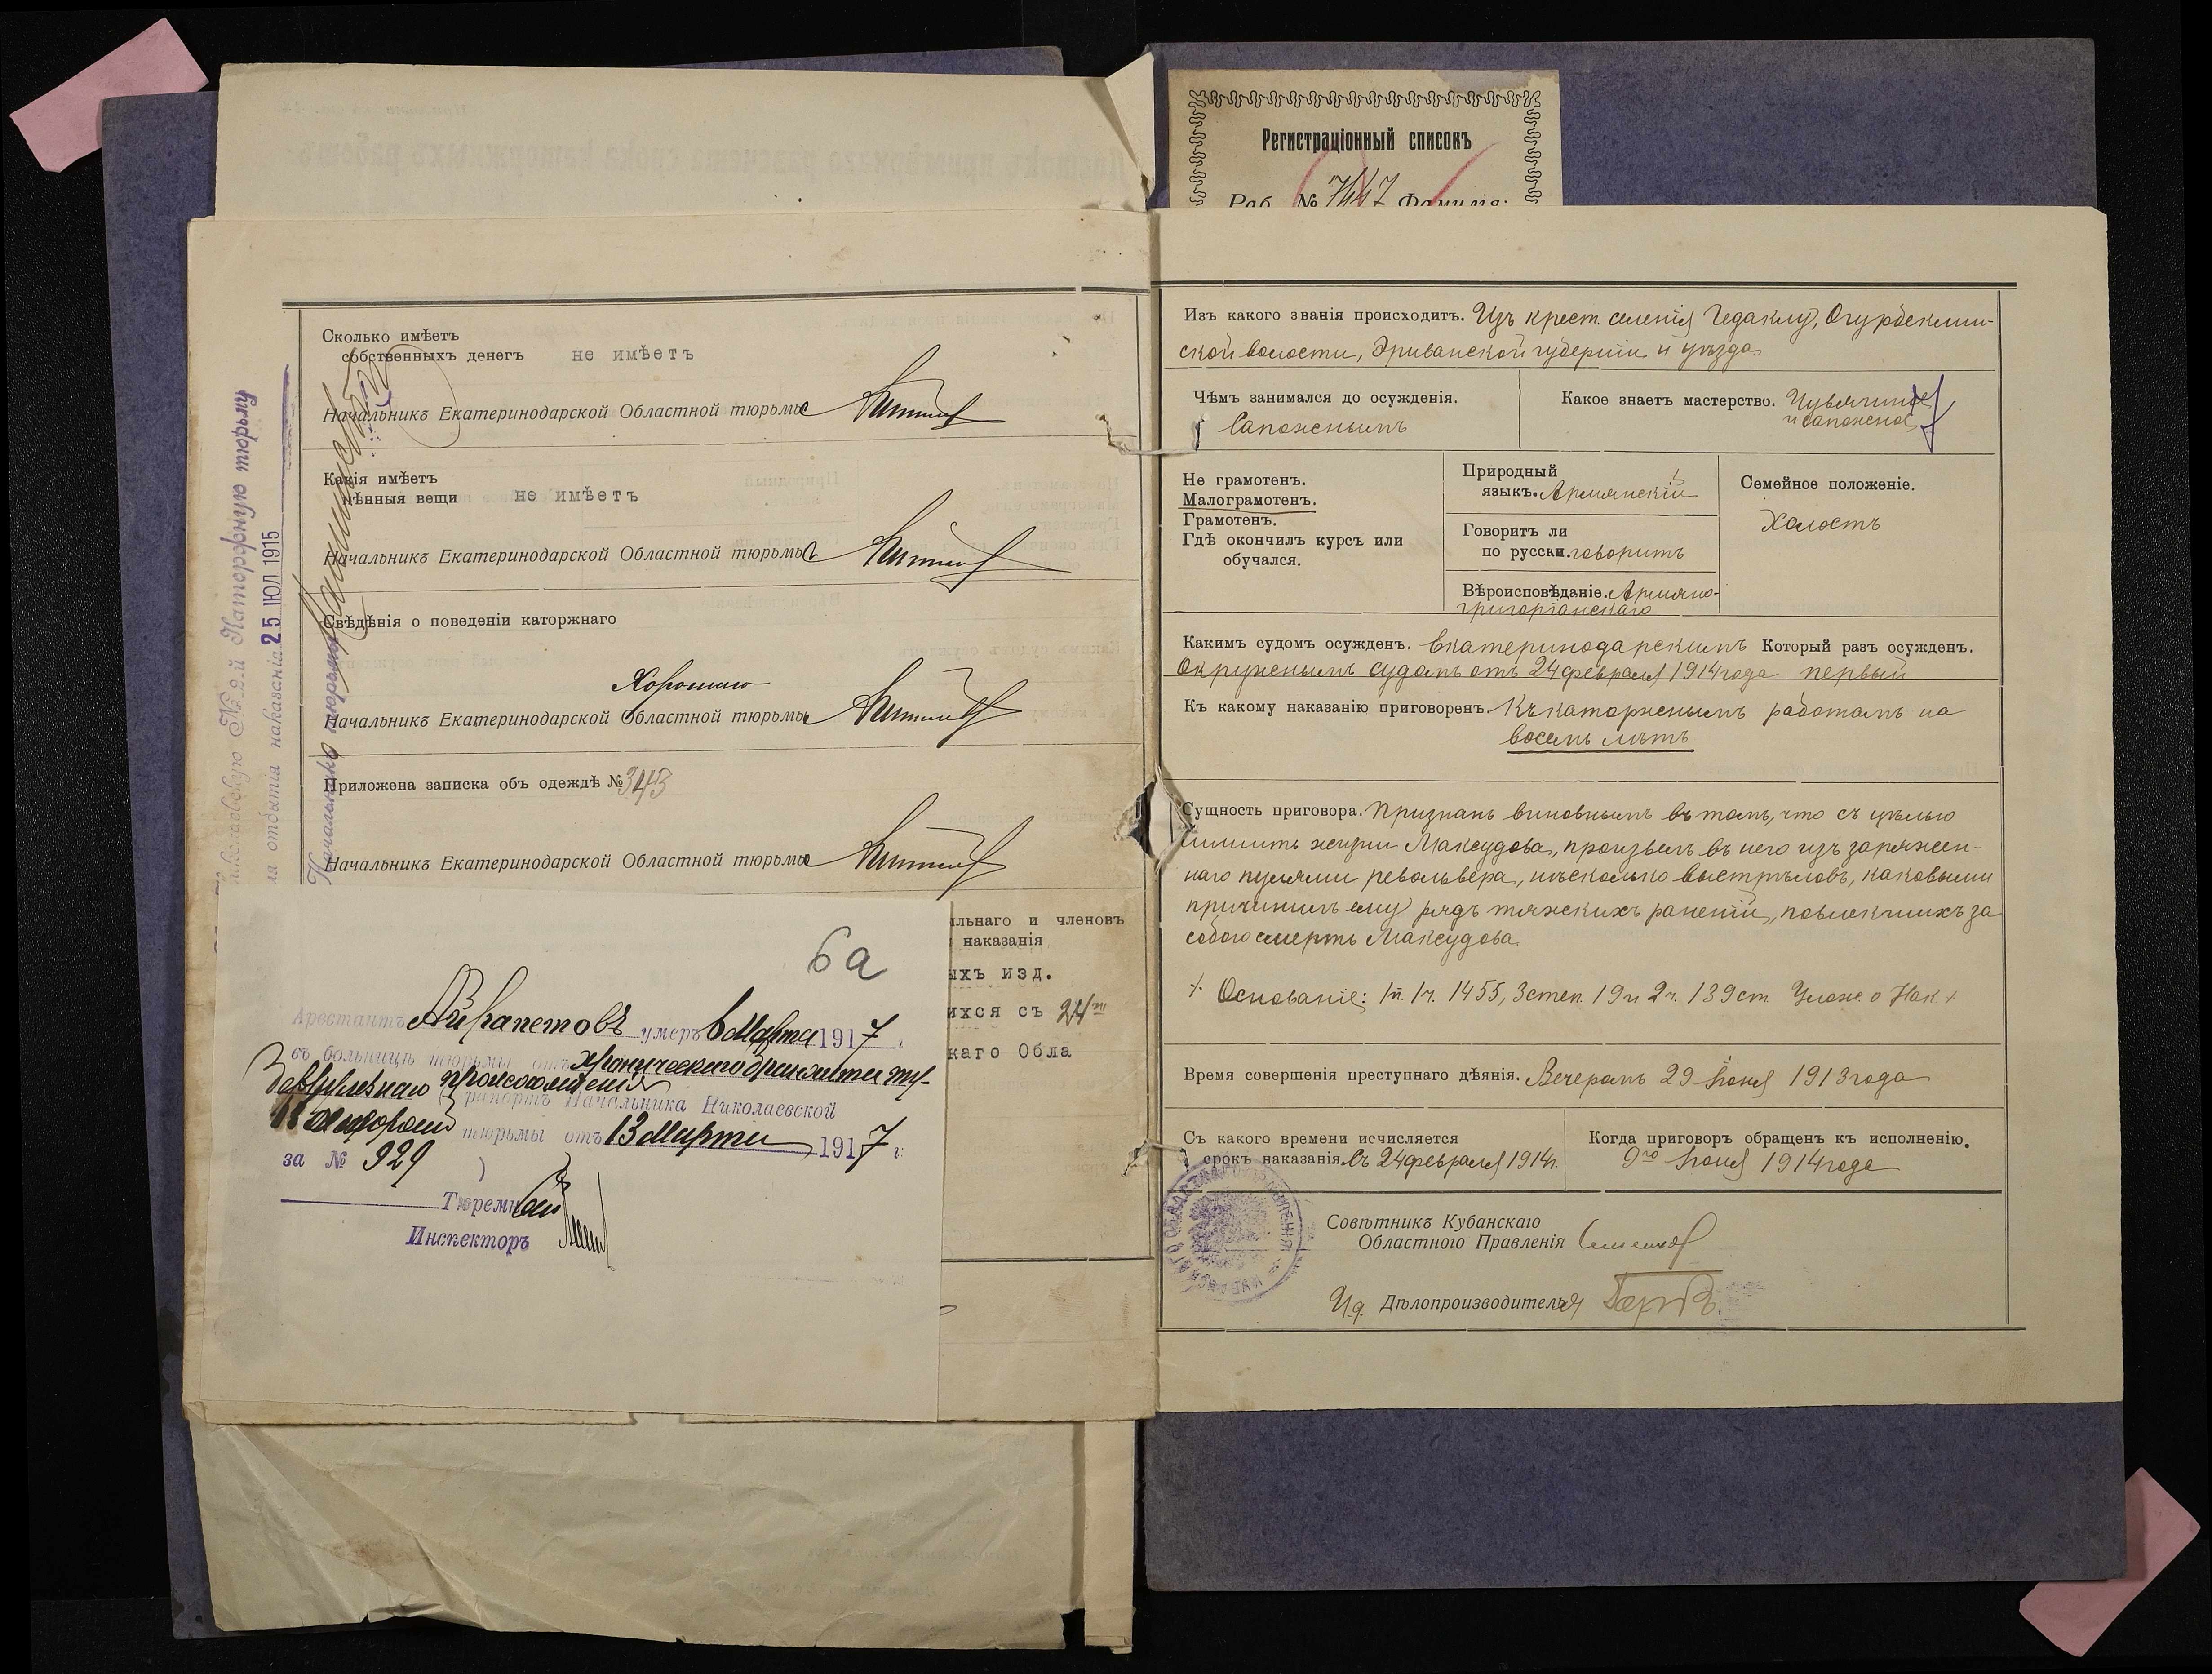 Регистраціонный списокъ
Раб. № 7447 Фамилія:
Сколько имѣетъ
собственныхъ денегъ не имѣетъ
Начальникъ Екатеринодарской Областной тюрьмы
Какія имѣетъ
цѣнныя вещи не имѣетъ
Начальникъ Екатеринодарской Областной тюрьмы
Свѣдѣнія о поведеніи каторжнаго
Хорошаго
Начальникъ Екатеринодарской Областной тюрьмы
Приложена записка объ одеждѣ № 343
Начальникъ Екатеринодарской Областной тюрьмы
Николаевскую №2-й Каторжную тюрьму
для отбытія наказанія 25 ІЮЛ 1915
Начальникъ тюрьмы
льнаго и членовъ
наказанія
ыхъ изд.
ихся съ 24
каго Обла
6а
Арестантъ Айрапетовъ умеръ 6 Марта 1917 г.
въ больницѣ тюрьмы отъ хроническаго бронхита ту-
беркулезнаго происхожденія
(рапортъ Начальника Николаевской
тюрьмы отъ 13 Марта 1917 г.
за № 929 )
Тюремный
Инспекторъ
Изъ какого званія происходитъ. Изъ крест. селенія Гедаклу, Огурбеклин-
ской волости, Эриванской губерніи и уѣзда
Чѣмъ занимался до осужденія.
Сапожнымъ
Какое знаетъ мастерство. Чувячное
и сапожное
Не грамотенъ.
Малограмотенъ.
Грамотенъ.
Гдѣ окончилъ курсъ или
обучался.
Природный
языкъ. Армянскій
Говоритъ ли
по русски. говоритъ
Вѣроисповѣданіе. Армяно-
григоріанскаго
Семейное положеніе.
Холостъ
Какимъ судомъ осужденъ. Екатеринодарскимъ Который разъ осужденъ.
Окружнымъ судомъ отъ 24 февраля 1914 года первый
Къ какому наказанію приговоренъ. Къ каторжнымъ работамъ на
восемь лѣтъ
Сущность приговора. Признанъ виновнымъ въ томъ, что съ цѣлью
лишить жизни Максудова, произвелъ въ него изъ заряжен-
наго пулями револьвера, нѣсколько выстрѣловъ, каковыми
причинилъ ему рядъ тяжкихъ раненій, повлекшихъ за
собою смерть Максудова.
Основаніе: 1 п. 1 ч. 1455, 3 степ. 19 и 2 ч. 139 ст. Улож. о Нак.
Время совершенія преступнаго дѣянія. Вечеромъ 29 Іюня 1913 года
Съ какого времени исчисляется
срокъ наказанія. Съ 24 февраля 1914 г.
Когда приговоръ обращенъ къ исполненію.
9го Іюня 1914 года
Совѣтникъ Кубанскаго
Областного Правленія
И.д. Дѣлопроизводителя